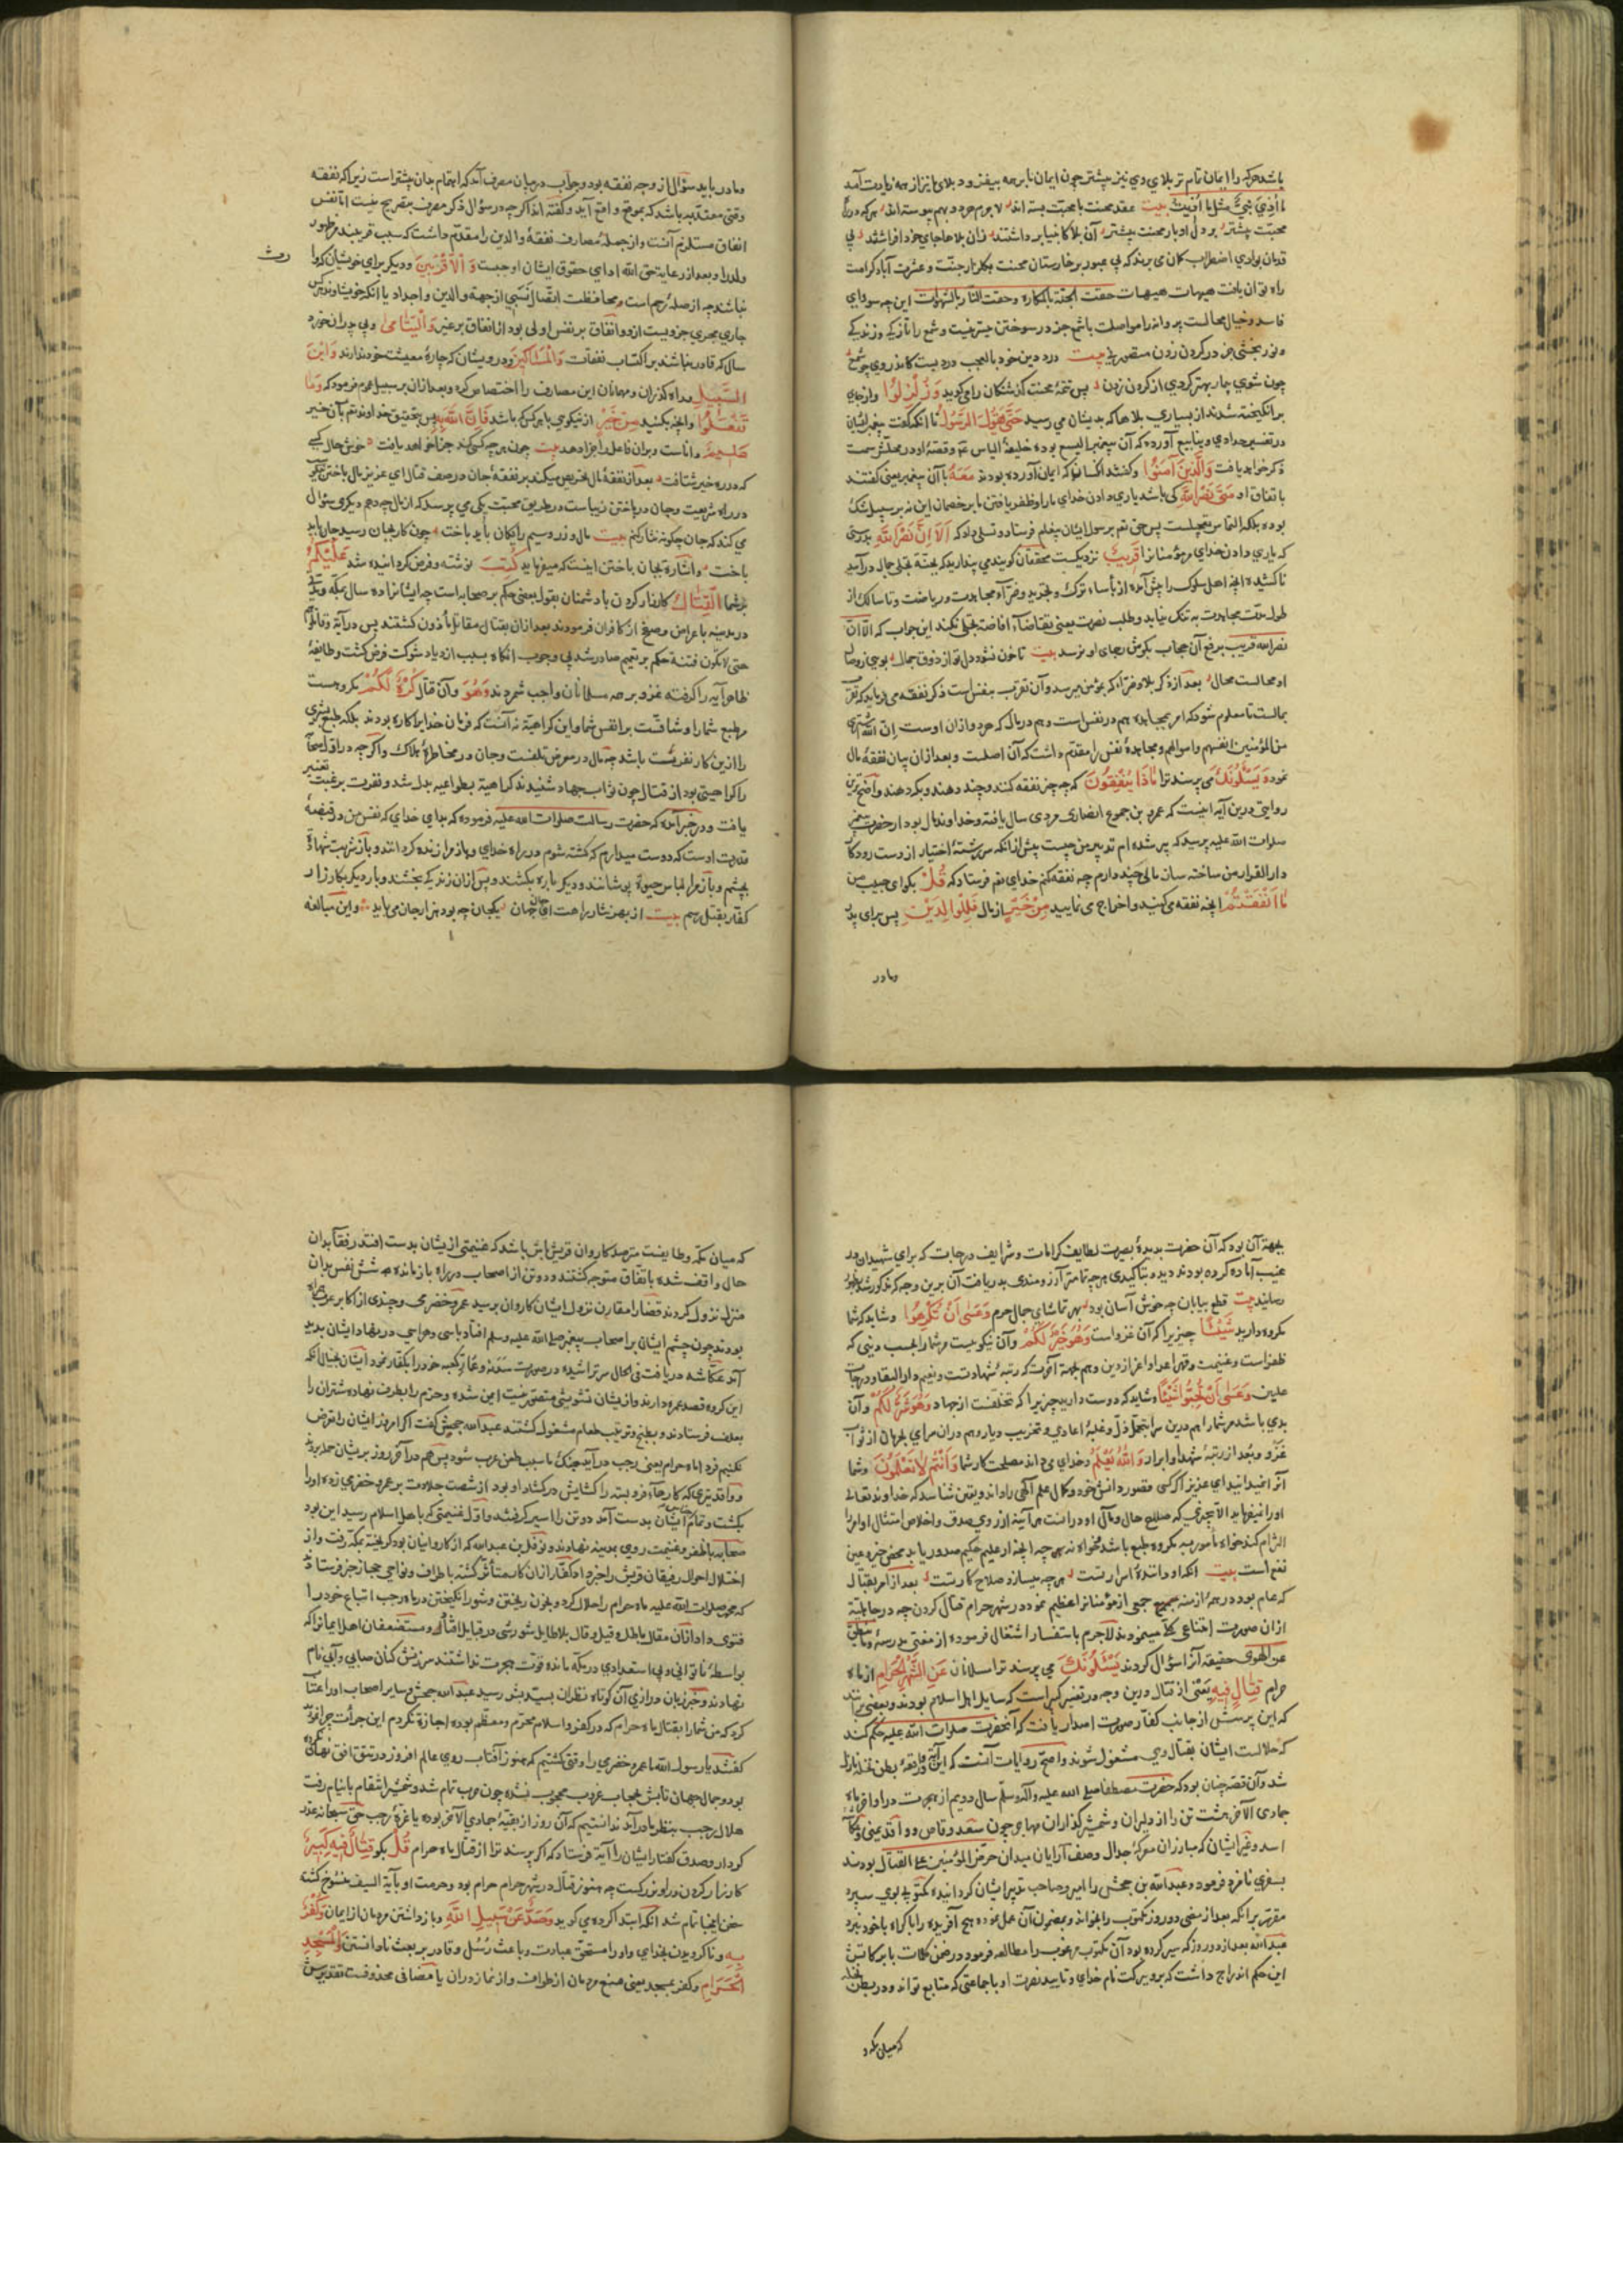 باشد هرکه را ایمان تمام تر بلای وی نیز بیشتر چون ایمان ما بر همه بیفزود بلای ما نیز از همه زیادت آمد
ما اوذی نبی مثل ما اوذیت بیت عقد محنت با محبت بسته اند لاجرم هر دو بهم پیوسته اند هرکه در راه
محبت پیشتر بر دل او بار محنت بیشتر آن بلا کانبیا برداشتند زان بلا ها جای خود افراشتند
قدمان بوادی اضطراب کمان می برند که بی عبور بر خارستان محنت بگلزار جنت و عشرت آباد کرامت
راه توان یافت هیهات هیهات حفت الجنة بالمکاره وحفت النار بالشهوات این چه سودای
فاسد و خیال محالست پروانه را مواصلت با شمع جز در سوختن میسر نیست و شمع را تازگی و زندگی
و نور بخشی جز در گردن زدن متصور نی بیت درد دین خود بالعجب دردیست کاندر وی چو شمع
چون شوی بیمار بهتر گردی از گردن زدن پس تتمه محنت گذشتگان را می گوید وَزُلْزِلُوا و از جای
برانگیخته شدند از بسیاری بلا ها که بدیشان می رسید حَتَّى يَقُولَ الرَّسُولُ تا آنکه گفت پیغمبر ایشان
در تفسیر حدادی و ینابیع آورده که آن پیغمبر الیسع بوده خلیفه الیاس عم و قصه او در محلش سمت
ذکر خواهد یافت وَالَّذِينَ آمَنُوا و گفتند آنکسانی که ایمان آورده بودند مَعَهُ با آن پیغمبر یعنی گفتند
باتفاق او مَتَى نَصْرُ اللَّهِ کی باشد یاری دادن خدای ما را و ظفر یافتن ما بر خصمان این نه بر سبیل شک
بوده بلکه التماس تعجیلست پس حق تم برسول ایشان پیغام فرستاد و تسلی داد که أَلَا إِنَّ نَصْرَ اللَّهِ بدرستی
که یاری دادن خدای مر مؤمنانرا قَرِيبٌ نزدیکست محققان گویند می پندارید که بجنة تجلی جمال درآیید
ناکشیده آنچه اهل سلوک را پیش آمده از بأساء ترک و تجرید و ضراء مجاهدت و ریاضت و تا سالک از
طول مدت مجاهدت به تنگ نیاید و طلب نصرت یعنی تقاضاء افاضه تجلی نکند این جواب که الا ان
نصر الله قریب برفع آن حجاب بگوش رجای او نرسد بیت تا خون نشود دل تو از ذوق جمال بویی ز وصال
او محالست محال بعد از ذکر بلا و ضراء که بمؤمن میرسد و آن تقرب بنفس است ذکر نفقه می فرماید که تقرب
بمالست تا معلوم شود که امر بمجاهده هم در نفس است و هم در مال که هر دو ازان اوست ان الله اشتری
من المؤمنین انفسهم واموالهم و مجاهده نفس را مقدم داشت که آن اصلست و بعد ازان بیان نفقه مال
نمود وَيَسْأَلُونَكَ می پرسند ترا مَاذَا يُنْفِقُونَ که چه چیز نفقه کنند و چند دهند و بکه دهند و اصح ترین
روایتی درین آیه اینست که عمرو بن جموح انصاری مردی سال یافته و خداوند مال بود از حضرت پیغمبر
صلوات الله علیه پرسید که پیر شده ام تدبیر من چیست پیش از آنکه سررشته اختیار از دست رود کار
دار القرار من ساخته سان مالی چند دارم چه نفقه کنم خدای تم فرستاد که قُلْ بگو ای حبیب من
مَا أَنْفَقْتُمْ آنچه نفقه می کنید و اخراج می نمایید مِنْ خَيْرٍ از مال فَلِلْوَالِدَيْنِ پس برای پدر
ومادر
ومادر باید سؤال از وجه نفقه بود و جواب در بیان مصرف آمد که اهتمام بدان بیشتر است زیرا که نفقه
وقتی معتد به باشد که بموقع واقع آید و گفته اند اگر چه در سؤال ذکر مصرف بتصریح نیست اما نفس
انفاق مستلزم آنست و از جمله مصارف نفقه والدین را مقدم داشت که سبب قریبند در ظهور
ولد را و بعد از رعایت حق الله ادای حقوق ایشان اوجبست وَالْأَقْرَبِينَ و دیگر برای خویشان که وا
رث
نباشند چه از صله رحم است و محافظت اتصال نسبی از جهة والدین و اجداد یا آنکه خویشاوند هرکس
جاری مجری جزویست ازو و انفاق بر نفس اولی بود از انفاق بر غیر وَالْيَتَامَى و بی پدران خورد
سال که قادر نباشند بر اکتساب نفقات وَالْمَسَاكِينِ و درویشان که چاره معیشت خود ندارند وَابْنِ
السَّبِيلِ و راه گذران و مهمانان این مصارف را اختصاص کرده و بعد ازان بر سبیل عموم فرمود که وَمَا
تَفْعَلُوا وآنچه بکنید مِنْ خَيْرٍ از نیکویی با هرکس که باشد فَإِنَّ اللَّهَ بِهِ پس بتحقیق خداوند تم بآن خیر
عَلِيمٌ داناست و بران فاعل را جزا دهد بیت چون هر چه کسی کند جزا خواهد یافت خوش حال کسی
که در ره خیر شتافت بعد از نفقه مال تحریص میکند بر نفقه جان در صف قتال ای عزیز مال باختن
در راه شریعت و جان در باختن زیباست در طریق محبت یکی می پرسد که از مال چه دهم دیگری سؤال
می کند که جان چگونه نثار کنم بیت مال و زر و سیم رایگان باید باخت چون کار بجان رسید جان باید
باخت و اشارة بجان باختن اینست که میفرماید كُتِبَ نوشته و فرض گردانیده شد عَلَيْكُمُ
بر شما الْقِتَالُ کارزار کردن با دشمنان بقول بعضی حکم بر صحابه است چه ایشانرا ده سال بمکه و
در مدینه باعراض و صفح از کافران فرمودند بعد ازان بقتال مقاتل مأذون گشتند پس در آیه وقاتلوهم
حتی لا تکون فتنة حکم بر تعمیم صادر شد بی وجوب آنگاه بسبب ازدیاد شوکت فرض گشت و طایفه
ظاهر آیه را گرفته غزو بر همه مسلمانان واجب شمردند وَهُوَ وآن قتال كُرْهٌ لَكُمْ مکروهست
مر طبع شما را و شاقست بر انفس شما و این کراهیة نه آنست که فرمان خدایرا کاره بودند بلکه طبع بشری
را ازین کار نفرتیست باشد چه مال در معرض تلفست و جان در مخاطره هلاک و اگر چه در اول صحابه
را کراهیتی بود از قتال چون ثواب جهاد شنیدند کراهیة بطواعیه بدل شد و نفرت برغبت تغییر
یافت و در خبر آمده که حضرت رسالت صلوات الله علیه فرموده که بدای خدای که نفس من در قبضه
قدرت اوست که دوست میدارم که کشته شوم در راه خدای و باز مرا زنده گردانند و باز شربت شهادة
بچشم و باز مرا لباس حیوة پوشانند و دیگر باره بکشند و پس ازان زندگی بخشند و بار دیگر بکارزار
کفار بقتل رسم بیت از بهر نثار راحت ای جان جهان یکجان چه بود هزار جان می باید واین مبالغه
بجهة آن بود که آن حضرت بدیده بصیرت لطایف کرامات و شرایف درجات که برای شهیدان در
غیب آماده کرده بودند دید و بتاکیدی هر چه تمامتر آرزومندی بدریافت آن برین وجه که مذکور شد
رسانید بیت قطع بیابان چه خوش آسان بود بهر تماشای جمال حرم وَعَسَى أَنْ تَكْرَهُوا و شاید که شما
مکروه دارید شَيْئًا چیزیرا که آن غزو است وَهُوَ خَيْرٌ لَكُمْ وآن نیکوییست مر شما را بحسب دینی که
ظفر است و غنیمت و قهر اعدا و اعزاز دین و هم بجهة آخرت که رتبه شهادتست و نعیم دار البقا و درجات
علیین وَعَسَى أَنْ تُحِبُّوا شَيْئًا و شاید که دوست دارید چیزیرا که تخلفست از جهاد وَهُوَ شَرٌّ لَكُمْ وآن
بدی باشد مر شما را هم درین سرا بتحمل ذل و غلبه اعادی و تخریب دیار و هم دران سرای بحرمان از ثواب
غزو و بعد از رتبه شهدا و ابرار وَاللَّهُ يَعْلَمُ و خدای می داند مصلحت کار شما وَأَنْتُمْ لَا تَعْلَمُونَ و شما
آنرا نمیدانید ای عزیز اگر کسی قصور دانش خود و کمال علم الهی را داند و یقین شناسد که خداوند تعالی
او را نمیفرماید الا بچیزی که صلاح حال و مآل او دراست هر آینه از روی صدق و اخلاص امتثال اوامر را
التزام کند خواه مأمور به مکروه طبع باشد خواه نه هر چه آنچه از علیم حکیم صدور یابد محض خیر و عین
نفع است بیت آنکه او داننده اسرار تست هرچه میسازد صلاح کار تست بعد از امر بقتال
که عام بود در همه ازمنه جمعی از مؤمنانرا عظیم نمود در شهر حرام قتال کردن چه در جاهلیة
ازان صورت امتناعی کلی مینمودند لاجرم باستفسار اشتغال فرموده از مفتی مدرسه وما ینطق
عن الهوی حقیقة آنرا سؤال کردند يَسْأَلُونَكَ می پرسند ترا مسلمانان عَنِ الشَّهْرِ الْحَرَامِ از ماه
حرام قِتَالٍ فِيهِ یعنی از قتال درین وجه در تفسیر کبیر است که سایل اهل اسلام بودند و بعضی برانند
که این پرسش از جانب کفار صورت اصدار یافت که آنحضرت صلوات الله علیه حکم کند
که حلالست ایشان بقتال وی مشغول شوند و اصح روایات آنست که این آیة در واقعه بطن نخله نازل
شد و آن قصه چنان بود که حضرت مصطفا صلی الله علیه وآله وسلم سال دویم از هجرت در اواخر ماه
جمادی الآخر هشت تن را از دلیران و شمشیرگذاران مهاجر چون سعد وقاص و واقد یمنی و عکاشه
اسد و غیر ایشان که مبارزان معرکه جدال و صف آرایان میدان حرض المؤمنین علی القتال بودند
بسفری نامزد فرمود و عبد الله بن جحش را امیر و صاحب تدبیر ایشان گردانید مکتوبی بوی سپرد
مقرر برانکه بعد از مضی دو روز مکتوب را بخواند و بمضمون آن عمل نموده هیچ آفریده را باکراه با خود نبرد
عبد الله بعد از دو روز که سیر کرده بود آن مکتوب مرغوب را مطالعه فرمود در ضمن کلمات بابرکاتش
این حکم اندراج داشت که برو ببرکت نام خدای و تایید نصرت او با جماعتی که متابع تواند و در بطن نخله
که میان مکه و
که میان مکه و طایفست مترصد کاروان قریش باش باشد که غنیمتی ازیشان بدست افتد رفقا بدان
حال واقف شده باتفاق متوجه گشتند و دو تن از اصحاب در راه باز مانده شش نفس بدان
منزل نزول کردند قضا را مقارن نزول ایشان کاروان برسید عمرو خضرمی و چندی از اکابر عرب همراه
بودند چون چشم ایشان بر اصحاب پیغمبر صلی الله علیه وسلم افتاد باسی و هراسی در نهاد ایشان پدید
آمد عکاشه دریافت فی الحال سر تراشیده در صورت سدنه و عمار کعبه خود را بکفار نمود ایشان بخیال آنکه
این گروه قصد عمره دارند و ازیشان تشویشی متصور نیست ایمن شده و حزم را بطرف نهاده شتران را
بعلف فرستادند و بطبخ و ترتیب طعام مشغول گشتند عبد الله جحش گفت اگر امروز ایشان را تعرض
نکنیم فردا ماه حرام یعنی رجب درآید جنگ ما سبب طعن عرب شود پس هم در آخر روز بریشان حمله برد
و واقد تیری که کارها فرو بسته را کشایش در کشاد او بود از شصت جلادت بر عمرو خضرمی زده او را
بکشت و تمام ایشان بدست آمد دو تن را اسیر گرفتند و اول غنیمتی که باهل اسلام رسید این بود
صحابه با ظفر و غنیمت روی بمدینه نهادند و نوفل بن عبد الله که از کاروانیان بود گریخته بمکه رفت و از
اختلال احوال رفیقان قریش را خبر داد کفار ازان کار متأثر گشته باطراف و نواحی حجاز خبر فرستاد
که محمد صلوات الله علیه ماه حرام را حلال کرد و بخون ریختن و شور انگیختن در ماه رجب اتباع خود را
فتوی داد ازان مقال باطل و قیل و قال بلاطایل شورشی در قبایل افتاد و مستضعفان اهل ایمانرا که
بواسطه ناتوانی و بی استعدادی در مکه مانده قوت هجرت نداشتند سرزنش کنان صابی و آبی نام
نهادند و خبر زبان درازی آن کوتاه نظران بسید بشر رسید عبد الله جحش و سایر اصحاب او را عتاب
کرد که من شما را بقتال ماه حرام که در کفر و اسلام محترم و معظم بوده اجازة نکردم این جرأت چرا نمودید
گفتند یا رسول الله ما عمرو خضرمی را وقتی کشتیم که هنوز آفتاب روی عالم افروز در تتق افق نهان نکرده
بود و جمال جهان تابش بحجاب غروب محجوب نشده چون حرب تمام شد و شمشیر انتقام بانیام رفت
هلال رجب بنظر ما درآمد ندانستیم که آن روز از بقیه جمادی الآخر بوده یا غره رجب حق سبحانه عذر
کردار و صدق گفتار ایشان را آیة فرستاد که اگر پرسند ترا از قتال ماه حرام قُلْ بگو قِتَالٌ فِيهِ كَبِيرٌ
کارزار کردن درو بزرگست چه هنوز قتال در شهر حرام حرام بود و حرمت او بآیة السیف منسوخ گشته
سخن اینجا تمام شد آنگه ابتدا کرده می گوید وَصَدٌّ عَنْ سَبِيلِ اللَّهِ و باز داشتن مردمان از ایمان وَكُفْرٌ
بِهِ و ناگرویدن بخدای و او را مستحق عبادت و باعث رسل و قادر بر بعث نادانستن وَالْمَسْجِدِ
الْحَرَامِ و کفر بمسجد یعنی منع مردمان از طواف و از نماز دران یا مضافی محذوفست تقدیرش